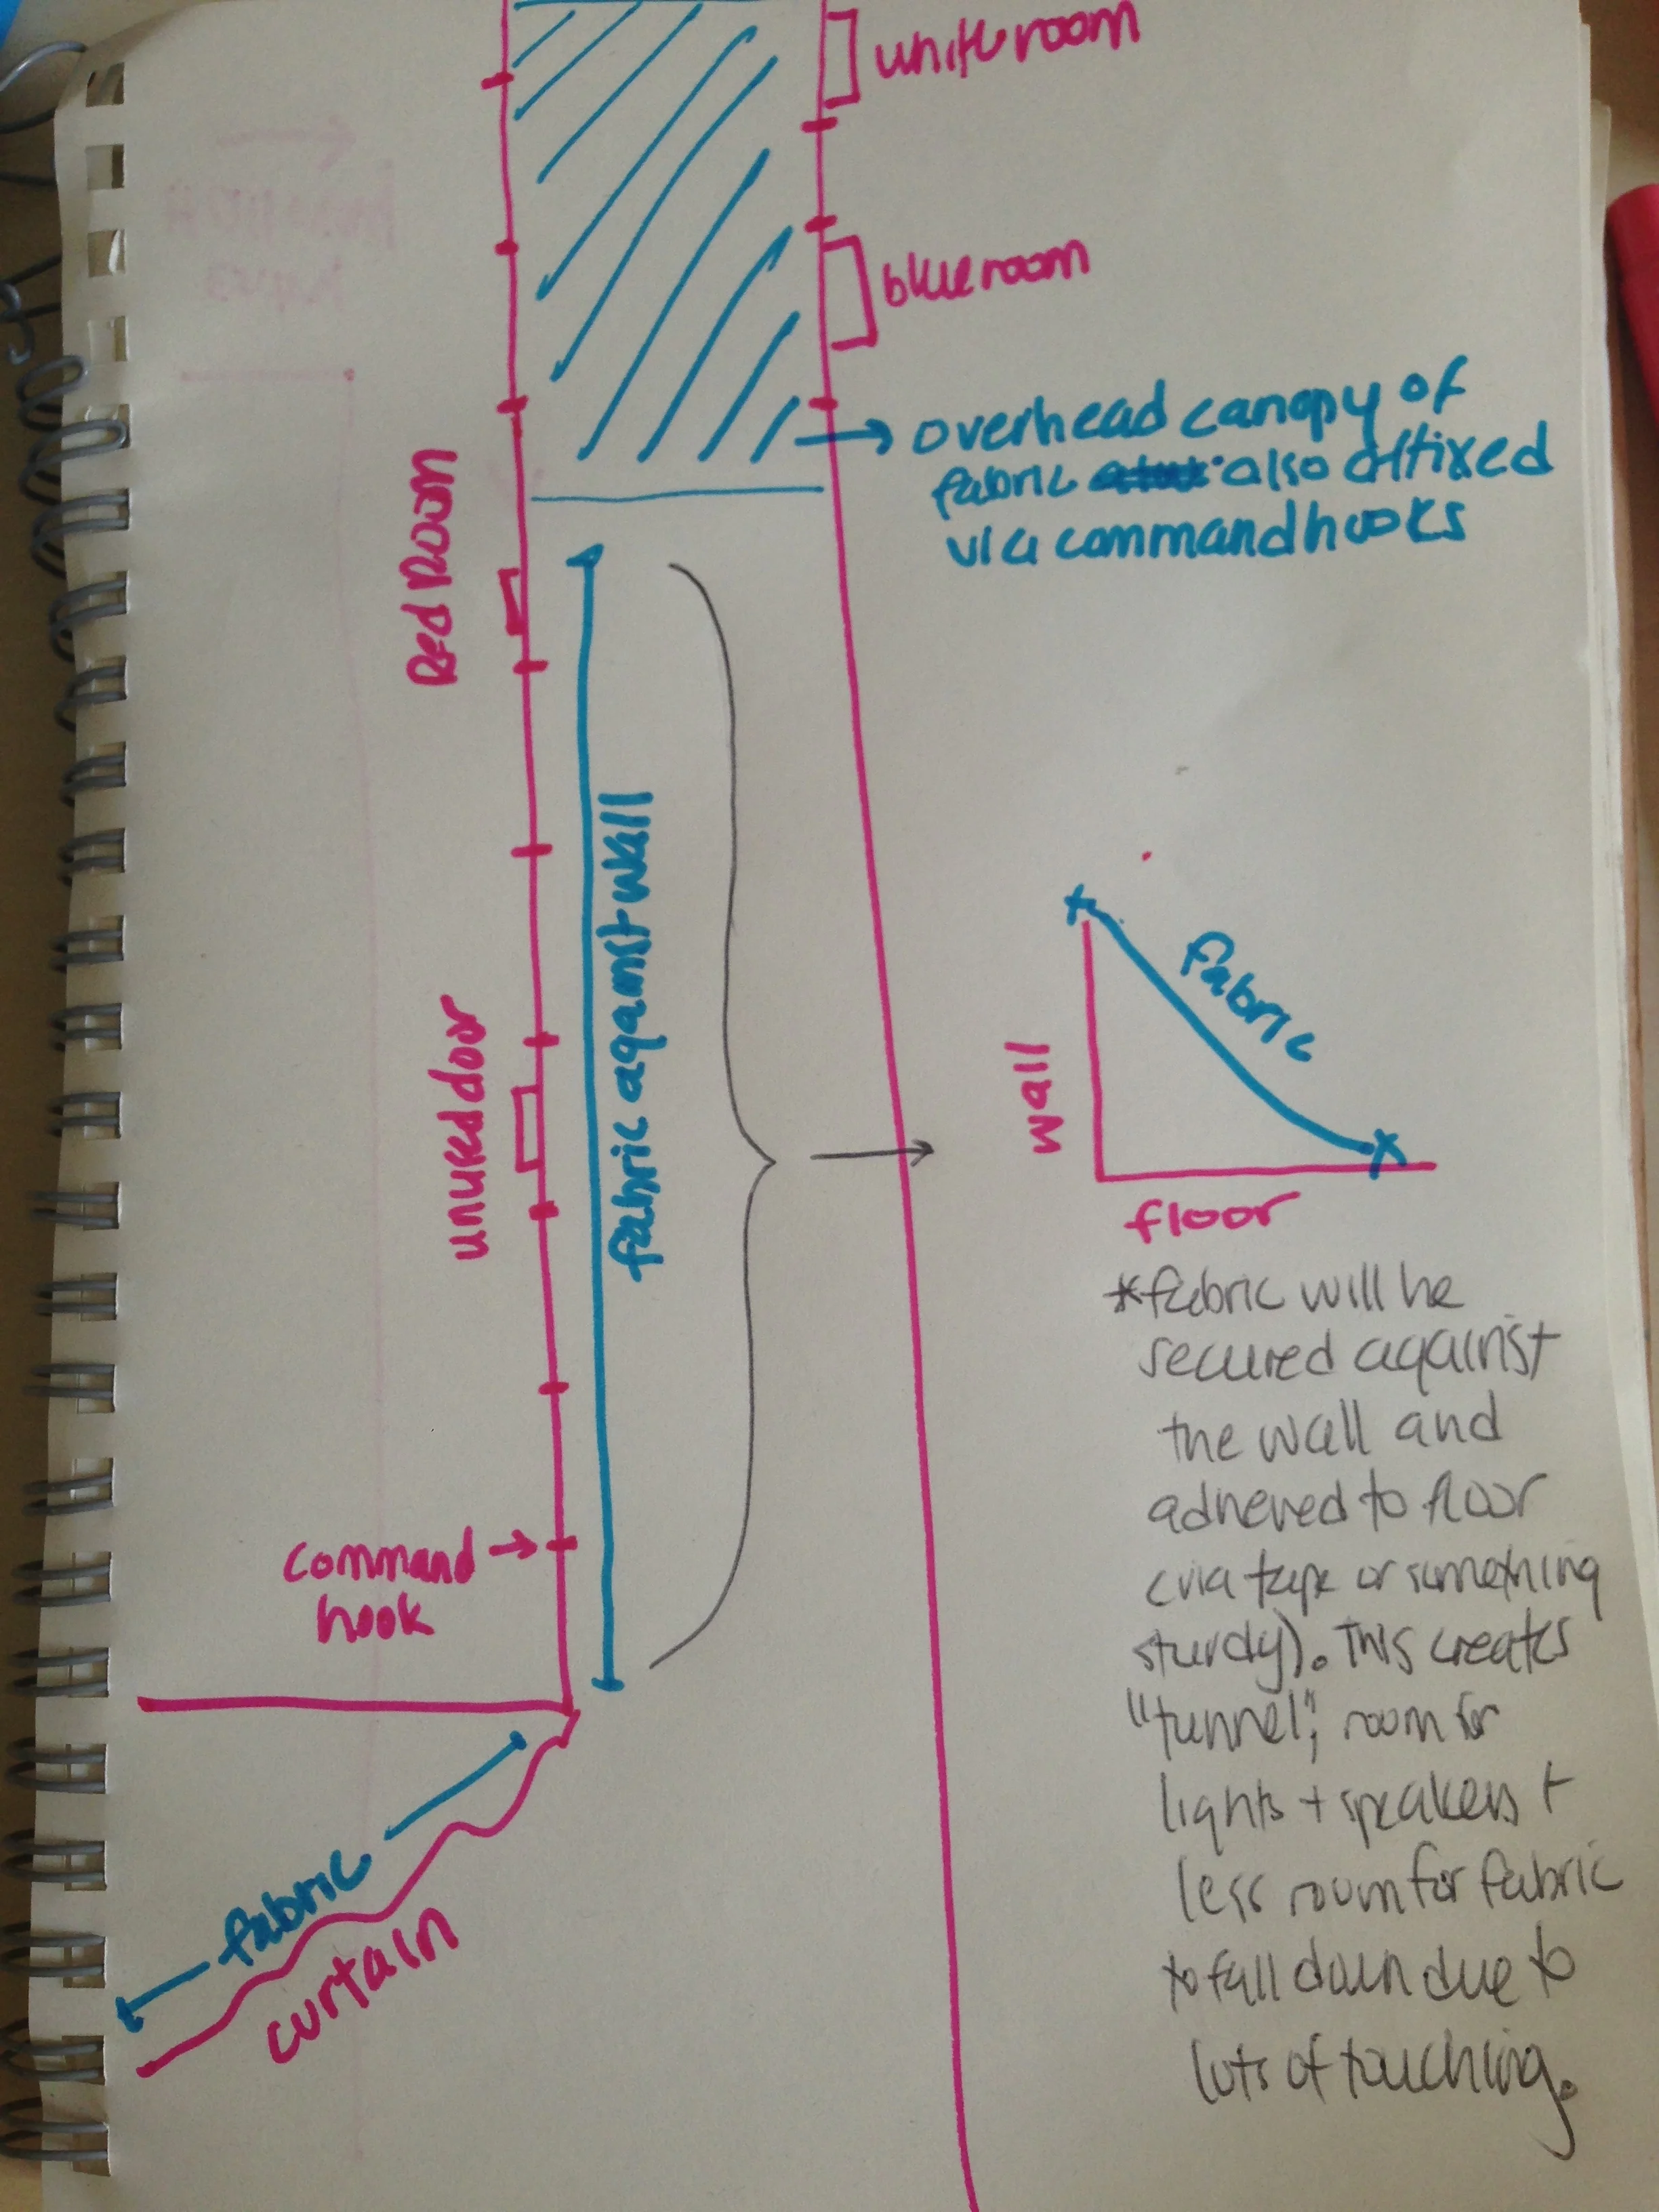 white room
blue room
overhead canopy of
fabric also affixed
via command hooks
Red Room
fabric against wall
unused door
fabric
wall
floor
*fabric will be
secured against
the wall and
adhered to floor
(via tape or something
sturdy). This creates
"tunnel", room for
lights + speakers +
less room for fabric
to fall down due to
lots of touching.
command
hook
fabric
curtain